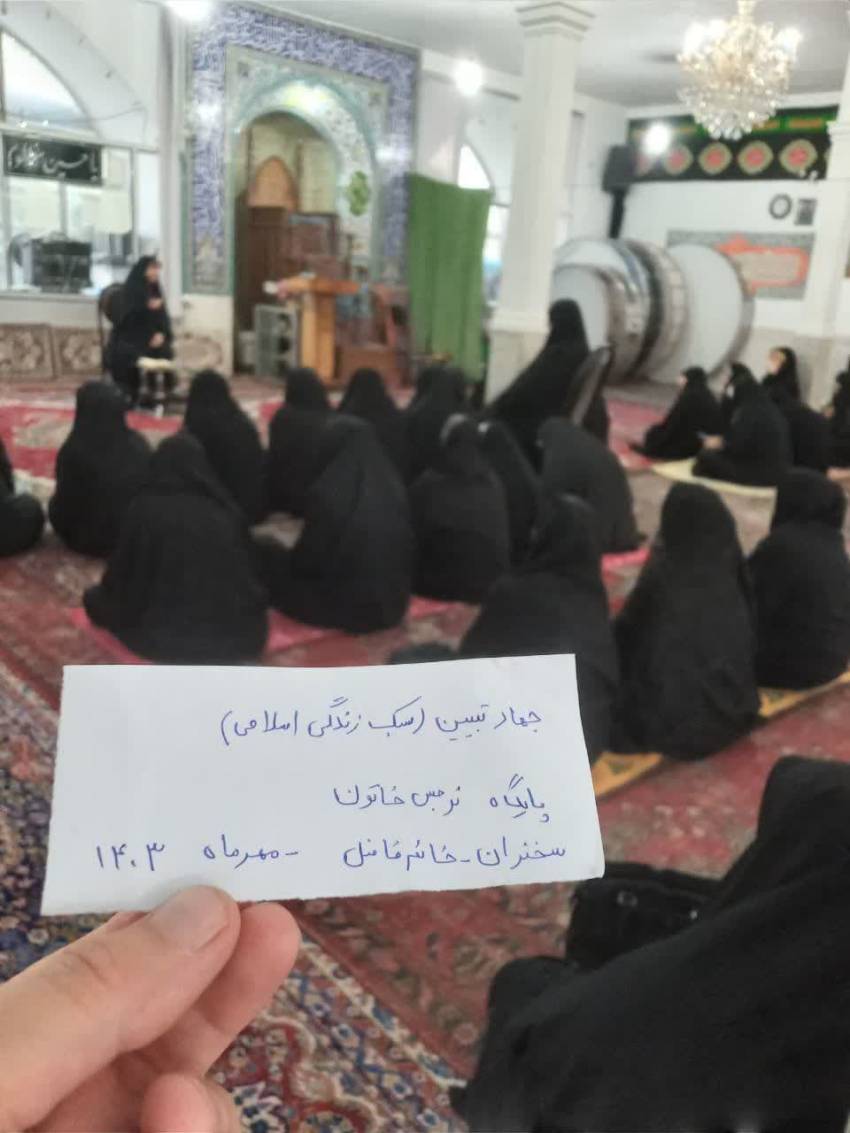 یا حسین مظلوم
جهاد تبیین (سبک زندگی اسلامی)
پایگاه نرجس خاتون
سخنران - خانم فاضل - مهرماه ۱۴۰۳